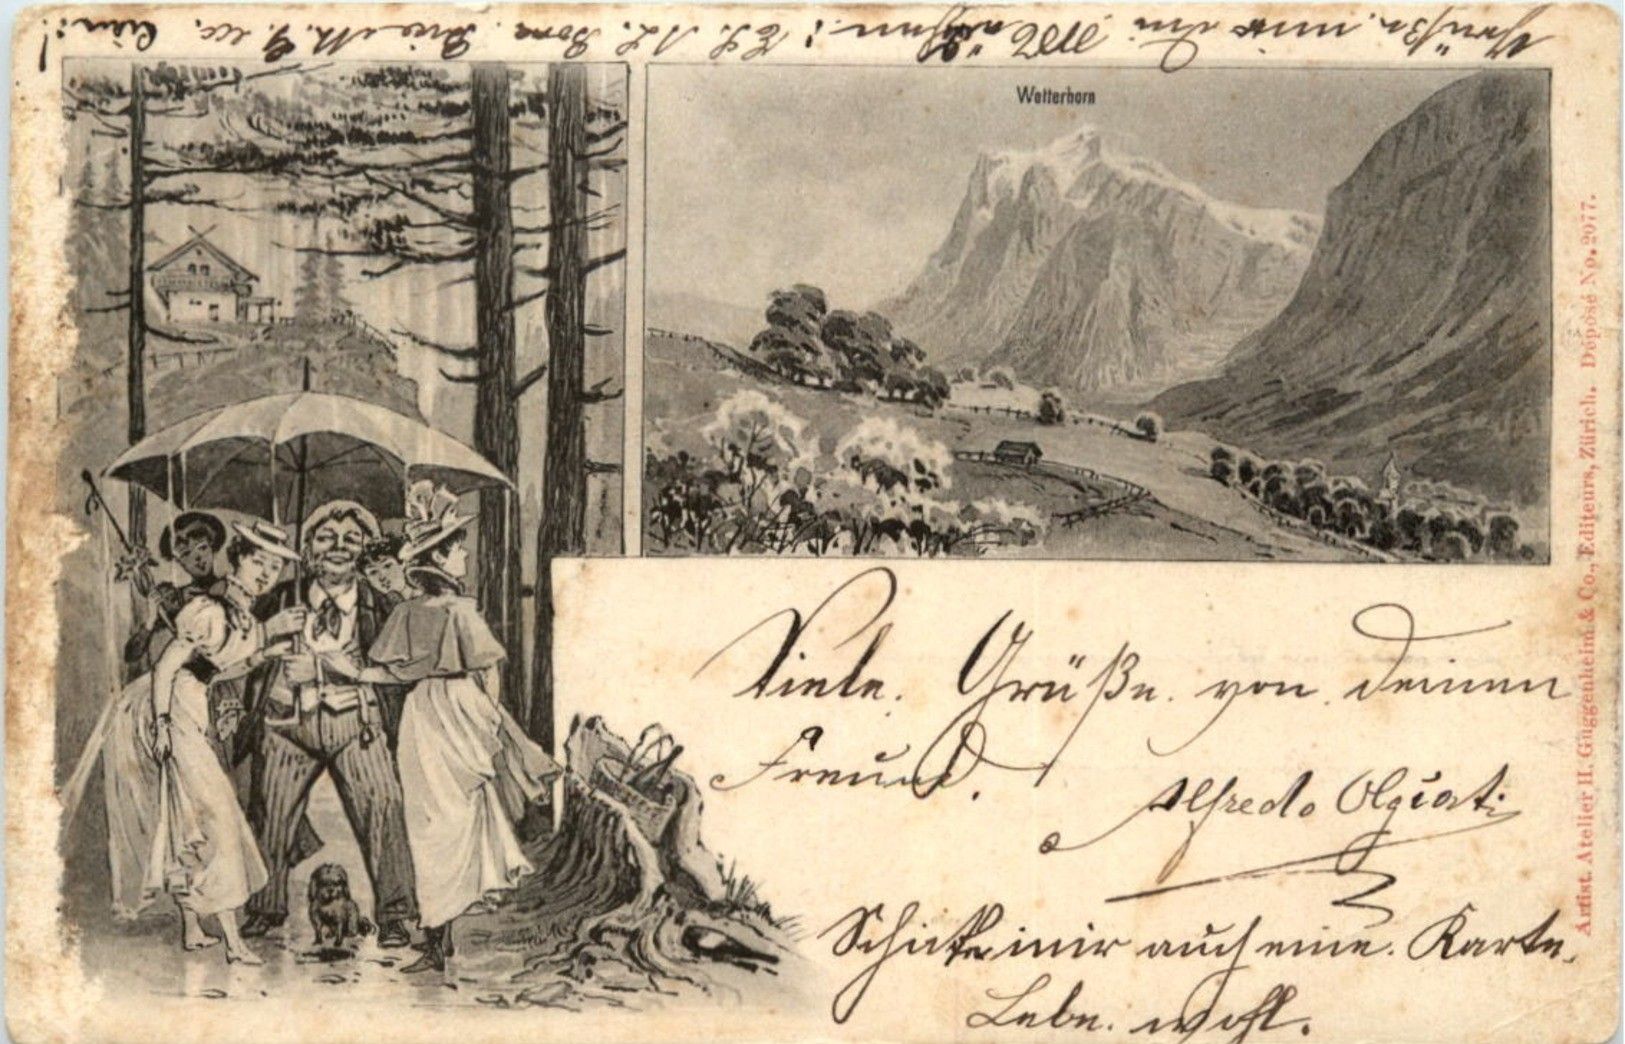 Wetterhorn
Viele Grüße von deinem
Freund.
Alfredo Olgiati
Schicke mir auch eine Karte.
Lebe wohl.
Artist. Atelier H. Guggenheim & Co., Editeurs, Zürich. Déposé No. 2077.
Grüße mir